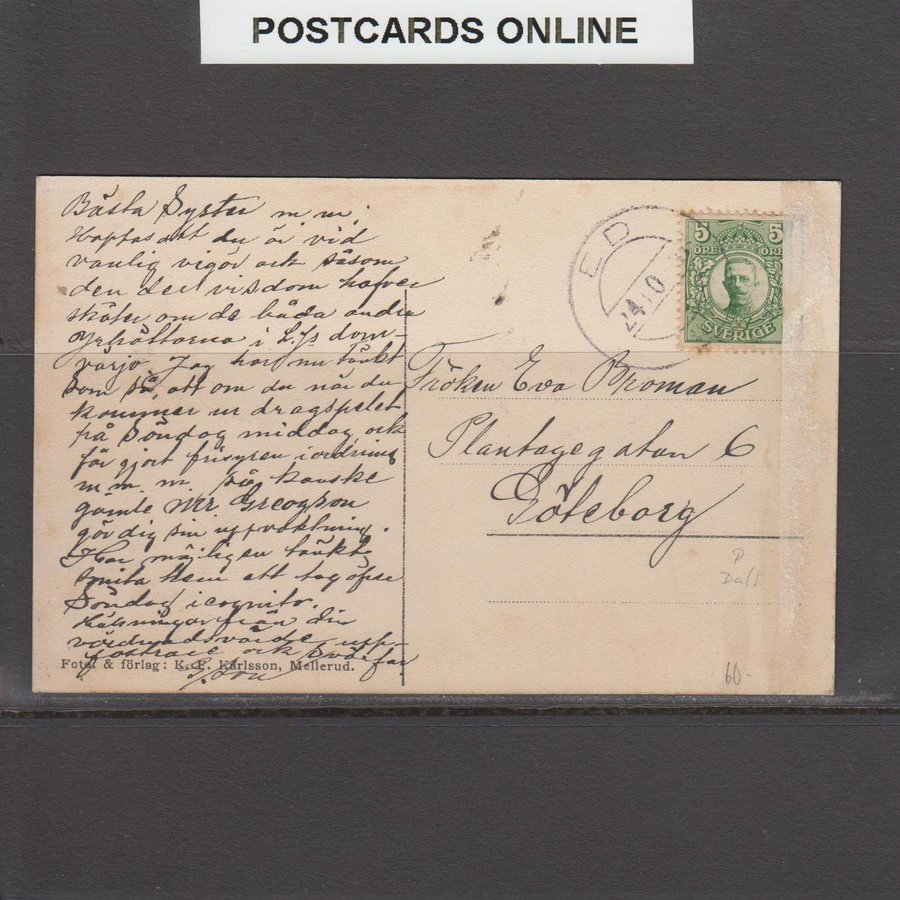 POSTCARDS ONLINE
Bästa Syster m m;
Hoppas att du är vid
vanlig vigör och såsom
den der visdom hafver
sköter om de båda andra
i L/s dom-
värjo. Jag har nu tänkt
som så, att om du när du
kommer ur dragspelet
på Söndag middag, och
får gjort frisyren i ordning
m. m. m. så kanske
gamle Mr.
gör dig sin uppvaktning.
Har möjligen tänkt
smita hem ett tag öfver
Söndag icognito.
Hälsningar från din
vördnadsvärde upp-
fostrare och Svärfar
Foto. & förlag: K. F. Karlsson, Mellerud.
ED
24.10
5 5
ÖRE ÖRE
SVERIGE
Fröken Eva Broman
Plantagegatan 6
Göteborg
P
Dals
60.